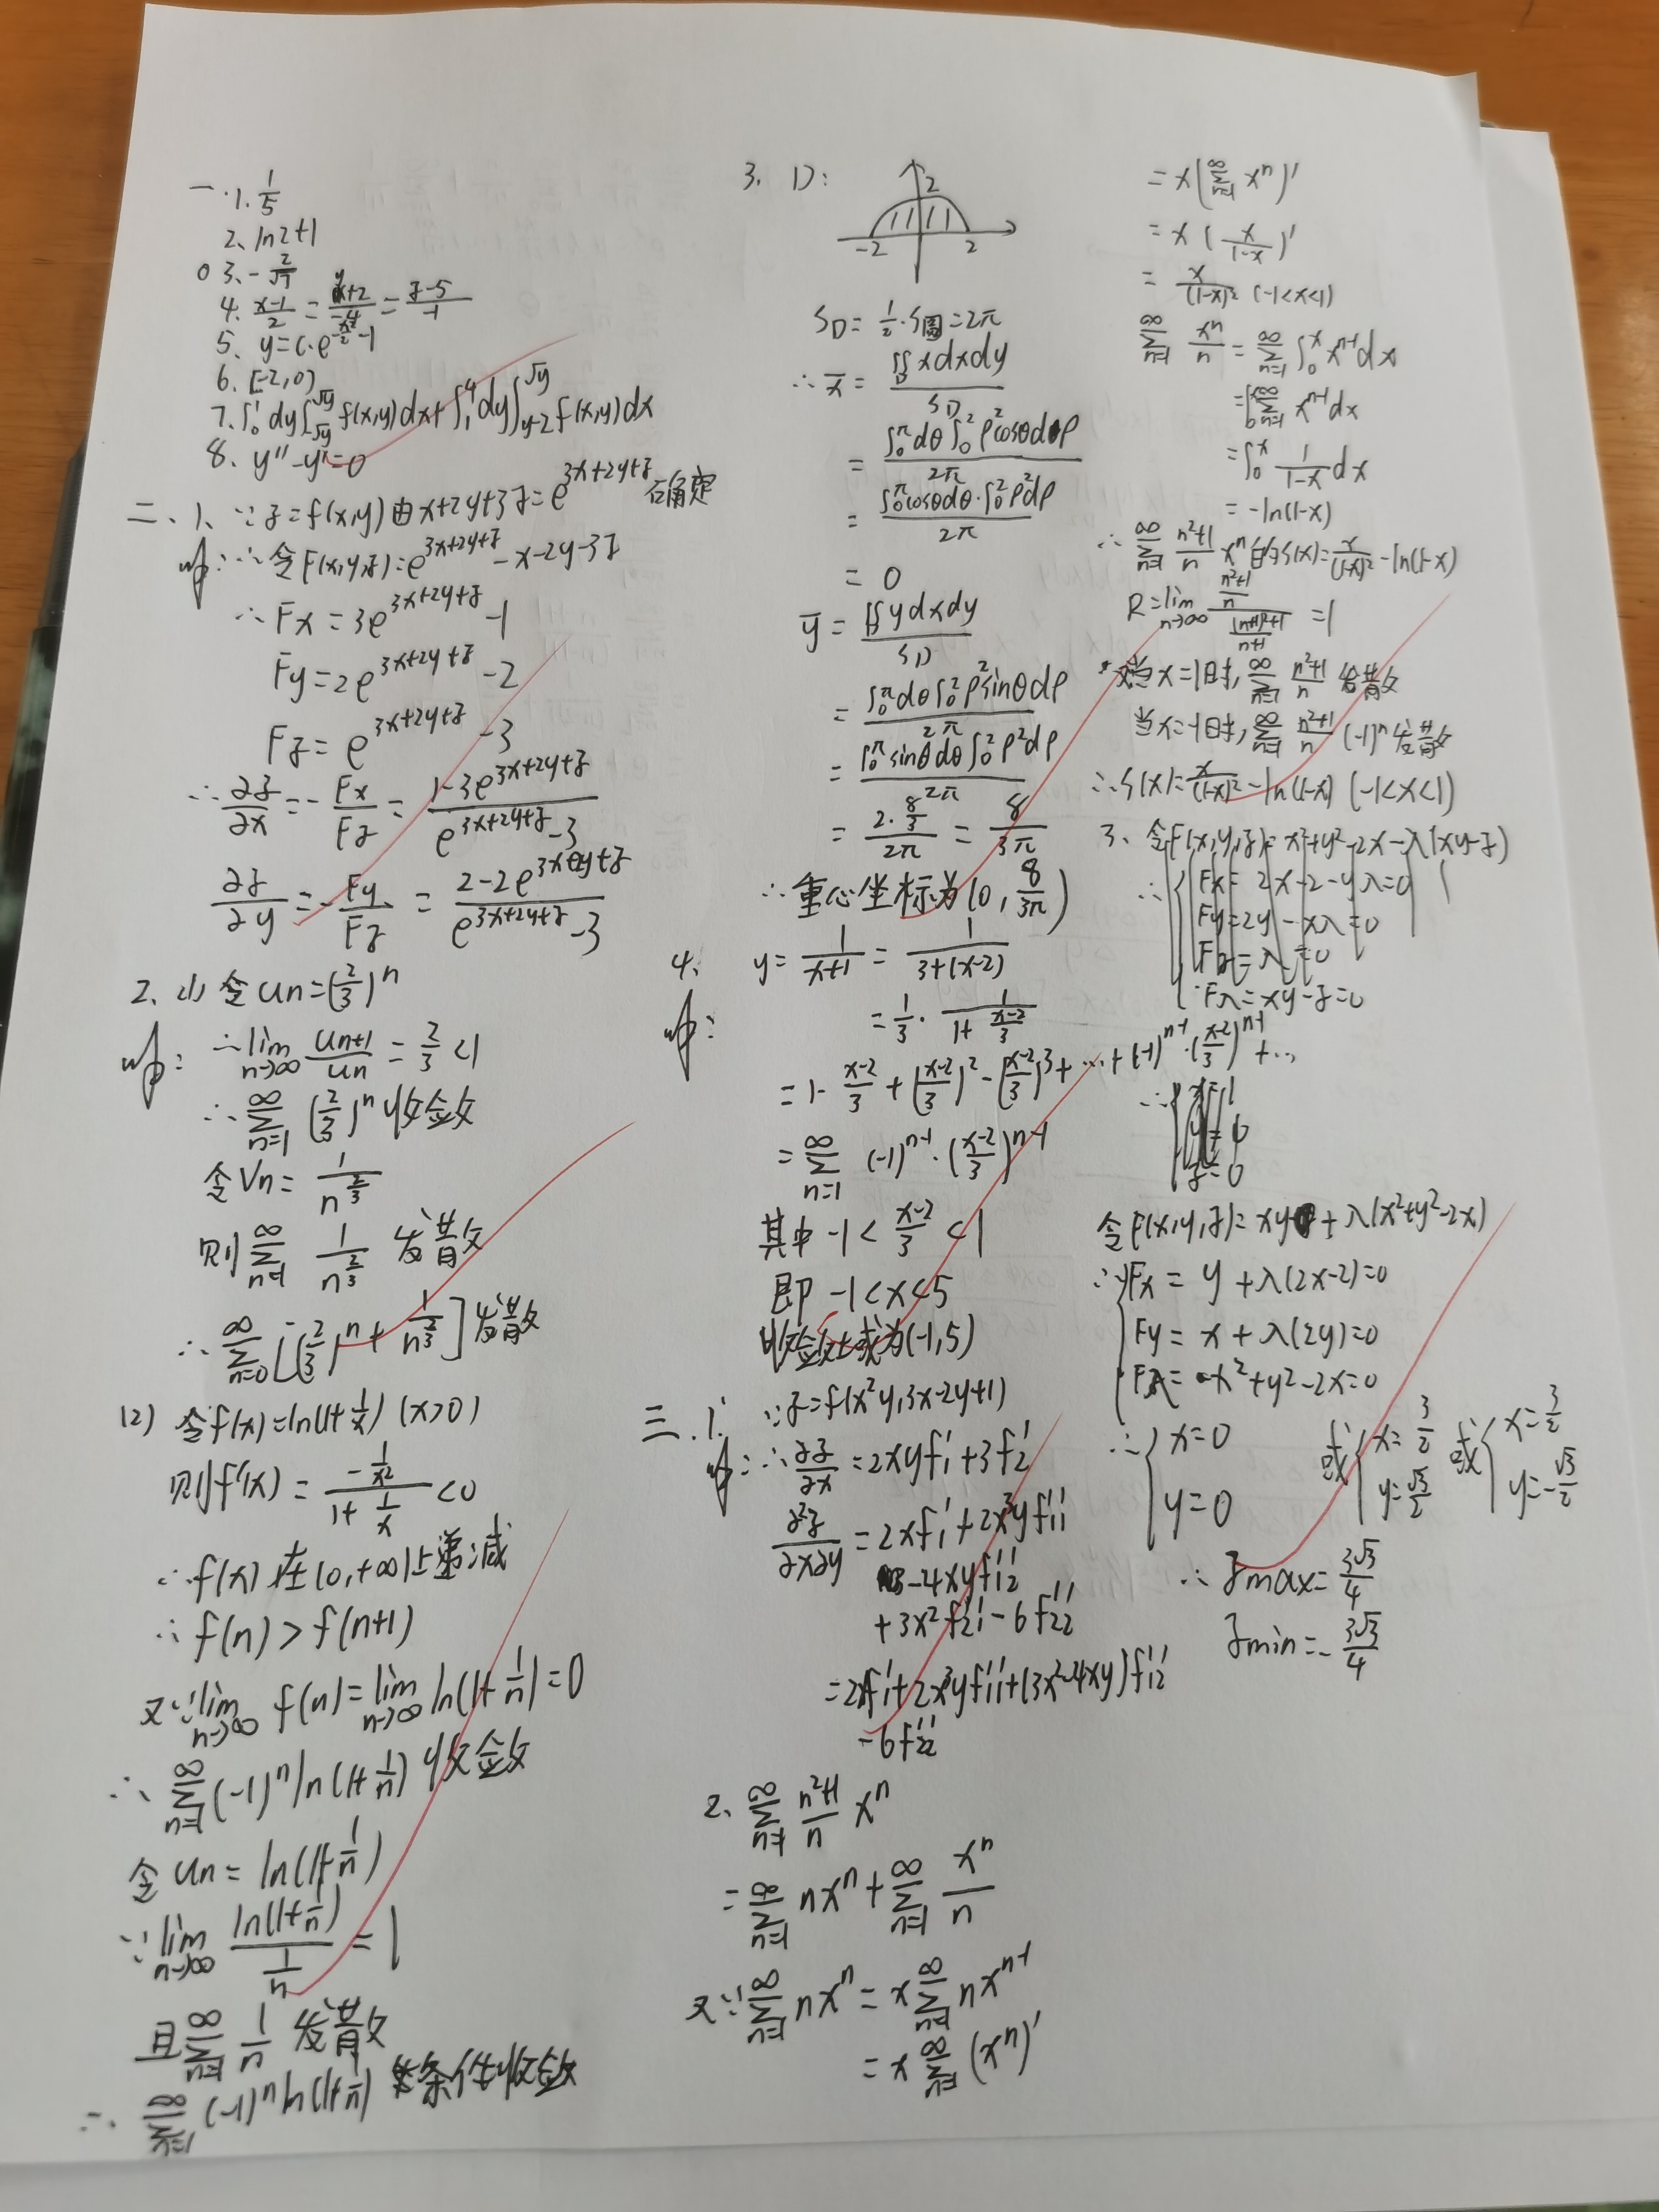 一.1.1/5
2、ln2+1
3、-2/√7
4、(x-1)/2=(y+2)/-4=(z-5)/-1
5、y=C·e^(-x²/2)-1
6、[-2,0)
7.∫₀¹dy∫_√y^√y f(x,y)dx+∫₁⁴dy∫_(y-2)^√y f(x,y)dx
8、y''-y'=0
二、1、∵z=f(x,y)由x+2y+3z=e^(3x+2y+z)确定
∴令F(x,y,z)=e^(3x+2y+z)-x-2y-3z
∴Fx=3e^(3x+2y+z)-1
Fy=2e^(3x+2y+z)-2
Fz=e^(3x+2y+z)-3
∴∂z/∂x=-Fx/Fz=(1-3e^(3x+2y+z))/(e^(3x+2y+z)-3)
∂z/∂y=-Fy/Fz=(2-2e^(3x+2y+z))/(e^(3x+2y+z)-3)
2、(1)令un=(2/3)^n
∴lim n→∞ un+1/un=2/3<1
∴∑n=1 ∞ (2/3)^n收敛
令Vn=1/n^(2/3)
则∑n=1 ∞ 1/n^(2/3) 发散
∴∑n=0 ∞ [(2/3)^n+1/n^(2/3)]发散
(2) 令f(x)=ln(1+1/x) (x>0)
则f'(x)=(-1/x²)/(1+1/x)<0
∴f(x)在(0,+∞)上递减
∴f(n)>f(n+1)
又∵lim n→∞ f(n)=lim n→∞ ln(1+1/n)=0
∴∑n=1 ∞ (-1)^n ln(1+1/n)收敛
令un=ln(1+1/n)
∵lim n→∞ ln(1+1/n)/(1/n)=1
且∑n=1 ∞ 1/n 发散
∴∑n=1 ∞ (-1)^n ln(1+1/n) 条件收敛
3、D:
2
-2 2
S_D=1/2·S圆=2π
∴x̄=∬_D xdxdy/S_D
=∫₀^π dθ∫₀² ρ²cosθdρ/2π
=∫₀^π cosθdθ·∫₀² ρ²dρ/2π
=0
ȳ=∬_D ydxdy/S_D
=∫₀^π dθ∫₀² ρ²sinθdρ/2π
=∫₀^π sinθdθ∫₀² ρ²dρ/2π
=(2·8/3)/2π=8/3π
∴重心坐标为(0,8/3π)
4、y=1/(x+1)=1/(3+(x-2))
=1/3·1/(1+(x-2)/3)
=1-(x-2)/3+((x-2)/3)²-((x-2)/3)³+…+(-1)^(n-1)·((x-2)/3)^(n-1)+…
=∑n=1 ∞ (-1)^(n-1)·((x-2)/3)^(n-1)
其中-1<(x-2)/3<1
即-1<x<5
收敛域为(-1,5)
三.1.∵z=f(x²y,3x-2y+1)
∴∂z/∂x=2xyf₁'+3f₂'
∂²z/∂x∂y=2xf₁'+2x³yf₁₁''
-4xyf₁₂''
+3x²f₂₁''-6f₂₂''
=2xf₁'+2x³yf₁₁''+(3x²-4xy)f₁₂''
-6f₂₂''
2、∑n=1 ∞ (n²+1)/n x^n
=∑n=1 ∞ nx^n+∑n=1 ∞ x^n/n
又∵∑n=1 ∞ nx^n=x∑n=1 ∞ nx^(n-1)
=x∑n=1 ∞ (x^n)'
=x(∑n=1 ∞ x^n)'
=x(x/(1-x))'
=x/(1-x)² (-1<x<1)
∑n=1 ∞ x^n/n=∑n=1 ∞ ∫₀^x x^(n-1)dx
=∫₀^x ∑n=1 ∞ x^(n-1)dx
=∫₀^x 1/(1-x)dx
=-ln(1-x)
∴∑n=1 ∞ (n²+1)/n x^n的S(x)=x/(1-x)²-ln(1-x)
R=lim n→∞ ((n²+1)/n)/(((n+1)²+1)/(n+1))=1
当x=1时,∑n=1 ∞ (n²+1)/n 发散
当x=-1时,∑n=1 ∞ (n²+1)/n (-1)^n发散
∴S(x)=x/(1-x)²-ln(1-x) (-1<x<1)
3、令F(x,y,z)=x²+y²-2x-λ(xy-z)
∴{Fx=2x-2-yλ=0
Fy=2y-xλ=0
Fz=λ=0
Fλ=xy-z=0
∴{x=1
y=0
z=0
令F(x,y,z)=xy+λ(x²+y²-2x)
∴{Fx=y+λ(2x-2)=0
Fy=x+λ(2y)=0
Fλ=x²+y²-2x=0
∴{x=0 y=0 或{x=3/2 y=√3/2 或{x=3/2 y=-√3/2
∴zmax=3√3/4
zmin=-3√3/4